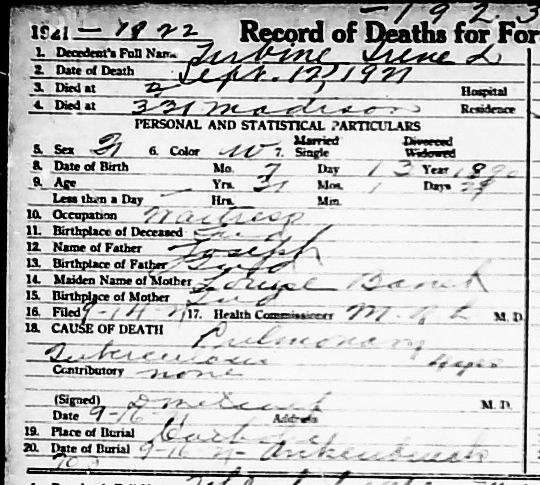 1921 — 1922 — 1923
Record of Deaths for For
1. Decedent's Full Name Turbine Irene L
2. Date of Death Sept. 12, 1921
3. Died at Hospital
4. Died at 331 Madison Residence
PERSONAL AND STATISTICAL PARTICULARS
5. Sex F 6. Color W 7. Married Single Divorced Widowed
8. Date of Birth Mo. 7 Day 13 Year 1890
9. Age Yrs. 31 Mos. 1 Days 29
Less than a Day Hrs. Min.
10. Occupation Waitress
11. Birthplace of Deceased Ind
12. Name of Father Joseph
13. Birthplace of Father Ind
14. Maiden Name of Mother Louise
15. Birthplace of Mother Ind
16. Filed 9-14-21 17. Health Commissioner M. D.
18. CAUSE OF DEATH Pulmonary
Tuberculosis
Contributory none
(Signed) M. D.
Date 9-16 Address
19. Place of Burial
20. Date of Burial 9-16-21